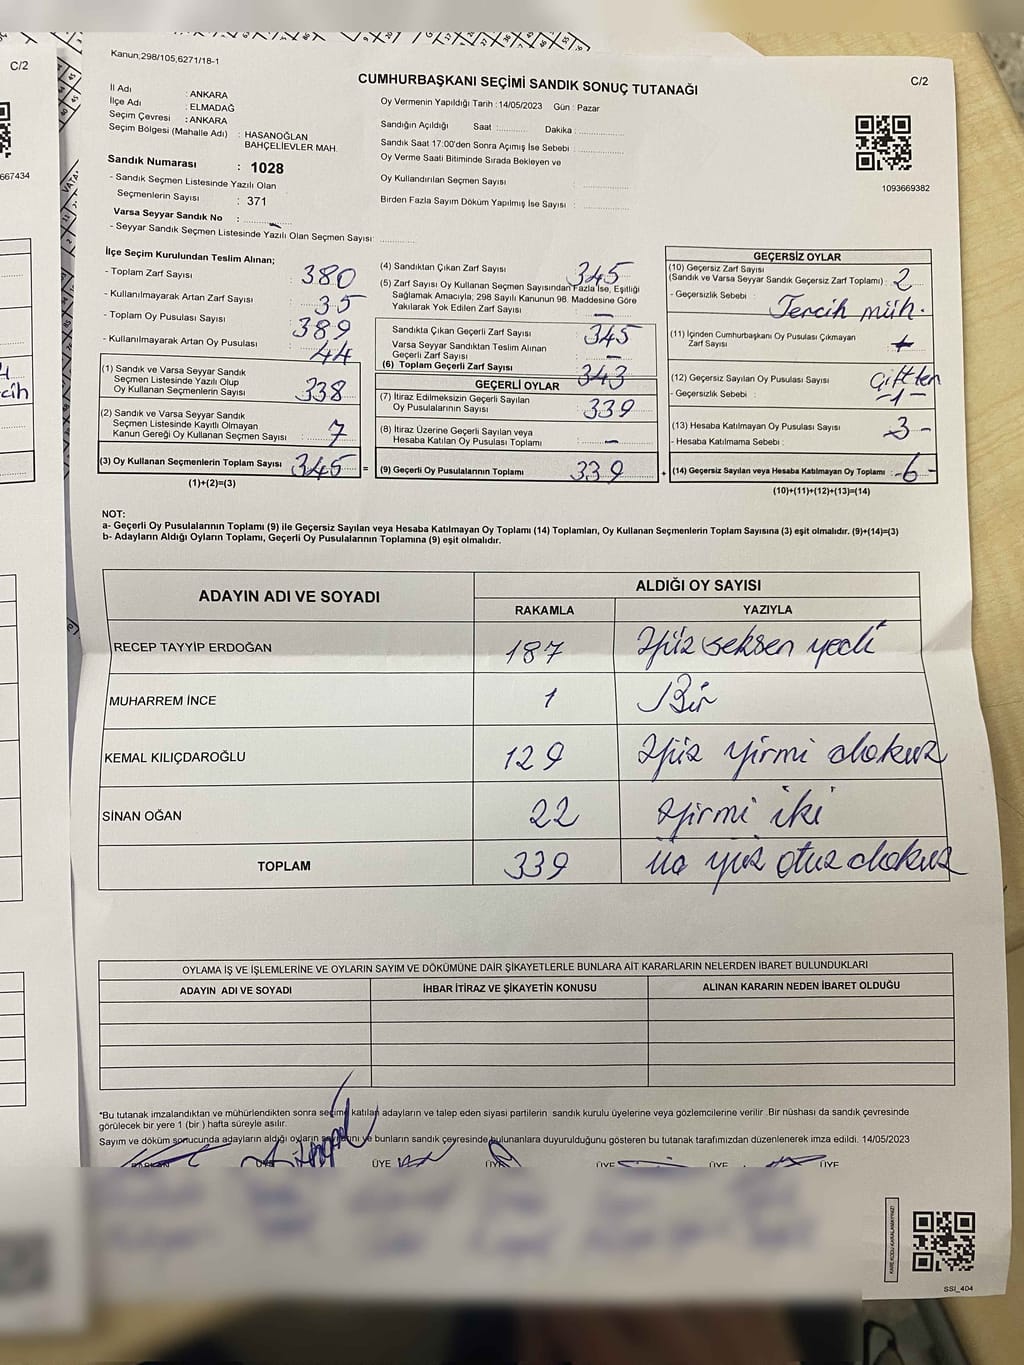 Kanun;298/105,6271/18-1
C/2
C/2
CUMHURBAŞKANI SEÇİMİ SANDIK SONUÇ TUTANAĞI
İl Adı : ANKARA
İlçe Adı : ELMADAĞ
Seçim Çevresi : ANKARA
Seçim Bölgesi (Mahalle Adı) : HASANOĞLAN
BAHÇELİEVLER MAH.
Sandık Numarası : 1028
- Sandık Seçmen Listesinde Yazılı Olan
Seçmenlerin Sayısı : 371
Varsa Seyyar Sandık No :
- Seyyar Sandık Seçmen Listesinde Yazılı Olan Seçmen Sayısı:
Oy Vermenin Yapıldığı Tarih :14/05/2023 Gün : Pazar
Sandığın Açıldığı Saat : Dakika :
Sandık Saat 17:00'den Sonra Açımış İse Sebebi :
Oy Verme Saati Bitiminde Sırada Bekleyen ve
Oy Kullandırılan Seçmen Sayısı :
Birden Fazla Sayım Döküm Yapılmış İse Sayısı :
1093669382
667434
İlçe Seçim Kurulundan Teslim Alınan;
- Toplam Zarf Sayısı : 380
- Kullanılmayarak Artan Zarf Sayısı : 35
- Toplam Oy Pusulası Sayısı : 389
- Kullanılmayarak Artan Oy Pusulası : 44
(1) Sandık ve Varsa Seyyar Sandık
Seçmen Listesinde Yazılı Olup
Oy Kullanan Seçmenlerin Sayısı : 338
(2) Sandık ve Varsa Seyyar Sandık
Seçmen Listesinde Kayıtlı Olmayan
Kanun Gereği Oy Kullanan Seçmen Sayısı : 7
(3) Oy Kullanan Seçmenlerin Toplam Sayısı : 345 =
(1)+(2)=(3)
(4) Sandıktan Çıkan Zarf Sayısı : 345
(5) Zarf Sayısı Oy Kullanan Seçmen Sayısından Fazla İse, Eşitliği
Sağlamak Amacıyla; 298 Sayılı Kanunun 98. Maddesine Göre
Yakılarak Yok Edilen Zarf Sayısı : —
Sandıkta Çıkan Geçerli Zarf Sayısı : 345
Varsa Seyyar Sandıktan Teslim Alınan
Geçerli Zarf Sayısı : —
(6) Toplam Geçerli Zarf Sayısı : 343
GEÇERLİ OYLAR
(7) İtiraz Edilmeksizin Geçerli Sayılan
Oy Pusulalarının Sayısı : 339
(8) İtiraz Üzerine Geçerli Sayılan veya
Hesaba Katılan Oy Pusulası Toplamı : —
(9) Geçerli Oy Pusulalarının Toplamı : 339 +
GEÇERSİZ OYLAR
(10) Geçersiz Zarf Sayısı
(Sandık ve Varsa Seyyar Sandık Geçersiz Zarf Toplamı) : 2
- Geçersizlik Sebebi : Tercih müh.
(11) İçinden Cumhurbaşkanı Oy Pusulası Çıkmayan
Zarf Sayısı :
(12) Geçersiz Sayılan Oy Pusulası Sayısı : Çiftten
- Geçersizlik Sebebi : -1-
(13) Hesaba Katılmayan Oy Pusulası Sayısı : -3-
- Hesaba Katılmama Sebebi :
(14) Geçersiz Sayılan veya Hesaba Katılmayan Oy Toplamı : -6-
(10)+(11)+(12)+(13)=(14)
NOT:
a- Geçerli Oy Pusulalarının Toplamı (9) ile Geçersiz Sayılan veya Hesaba Katılmayan Oy Toplamı (14) Toplamları, Oy Kullanan Seçmenlerin Toplam Sayısına (3) eşit olmalıdır. (9)+(14)=(3)
b- Adayların Aldığı Oyların Toplamı, Geçerli Oy Pusulalarının Toplamına (9) eşit olmalıdır.
ADAYIN ADI VE SOYADI ALDIĞI OY SAYISI
RAKAMLA YAZIYLA
RECEP TAYYİP ERDOĞAN 187 Yüz seksen yedi
MUHARREM İNCE 1 Bir
KEMAL KILIÇDAROĞLU 129 Yüz yirmi dokuz
SİNAN OĞAN 22 Yirmi iki
TOPLAM 339 üç yüz otuz dokuz
OYLAMA İŞ VE İŞLEMLERİNE VE OYLARIN SAYIM VE DÖKÜMÜNE DAİR ŞİKAYETLERLE BUNLARA AİT KARARLARIN NELERDEN İBARET BULUNDUKLARI
ADAYIN ADI VE SOYADI İHBAR İTİRAZ VE ŞİKAYETİN KONUSU ALINAN KARARIN NEDEN İBARET OLDUĞU
*Bu tutanak imzalandıktan ve mühürlendikten sonra seçime katılan adayların ve talep eden siyasi partilerin sandık kurulu üyelerine veya gözlemcilerine verilir .Bir nüshası da sandık çevresinde
görülecek bir yere 1 (bir ) hafta süreyle asılır.
Sayım ve döküm sonucunda adayların aldığı oyların sayılarını ve bunların sandık çevresinde bulunanlara duyurulduğunu gösteren bu tutanak tarafımızdan düzenlenerek imza edildi. 14/05/2023
BAŞKAN ÜYE ÜYE ÜYE ÜYE ÜYE ÜYE
KARE KODU KARALAMAYINIZ!
SSI_404